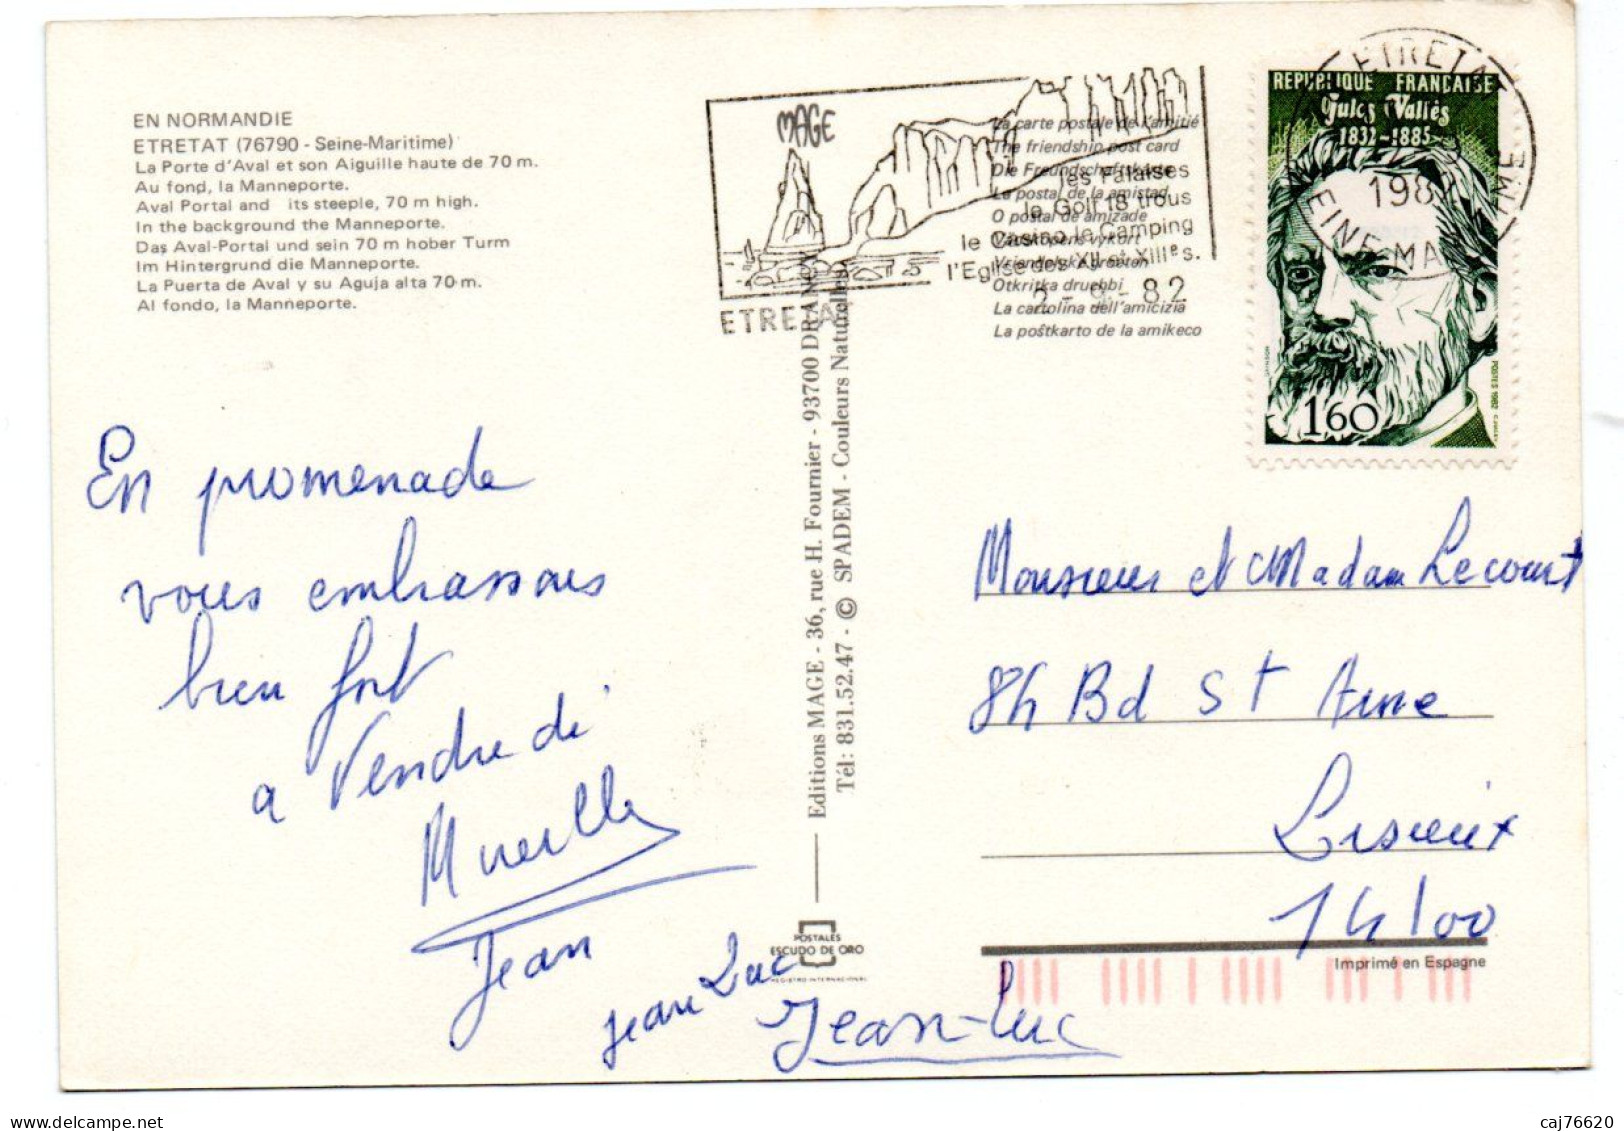 EN NORMANDIE
ETRETAT (76790 - Seine-Maritime)
La Porte d'Aval et son Aiguille haute de 70 m.
Au fond, la Manneporte.
Aval Portal and its steeple, 70 m high.
In the background the Manneporte.
Das Aval-Portal und sein 70 m hober Turm
Im Hintergrund die Manneporte.
La Puerta de Aval y su Aguja alta 70 m.
Al fondo, la Manneporte.
MAGE
ETRETAT
les Falaises
le Golf 18 trous
le Casino le Camping
l'Eglise des XII et XIIIes.
2-9-82
La carte postale de l'amitié
The friendship post card
Die Freundschaftskarte
La postal de la amistad
O postal de amizade
Vriendelske groeten
Otkritka druehbi
La cartolina dell'amicizia
La poŝtkarto de la amikeco
ETRETAT
1982
SEINE-MARITIME
REPUBLIQUE FRANCAISE
Jules Vallès
1832-1885
1,60
POSTES 1982
En promenade
vous embrassons
bien fort
a Vendredi
Mireille
Jean
Jean Luc
Jean-Luc
Editions MAGE - 36, rue H. Fournier - 93700 DRANCY
Tél: 831.52.47 - © SPADEM - Couleurs Naturelles
POSTALES
ESCUDO DE ORO
REGISTRO INTERNACIONAL
Monsieur et Madam Lecourt
84 Bd St Anne
Lisieux
14100
Imprimé en Espagne
caj76620